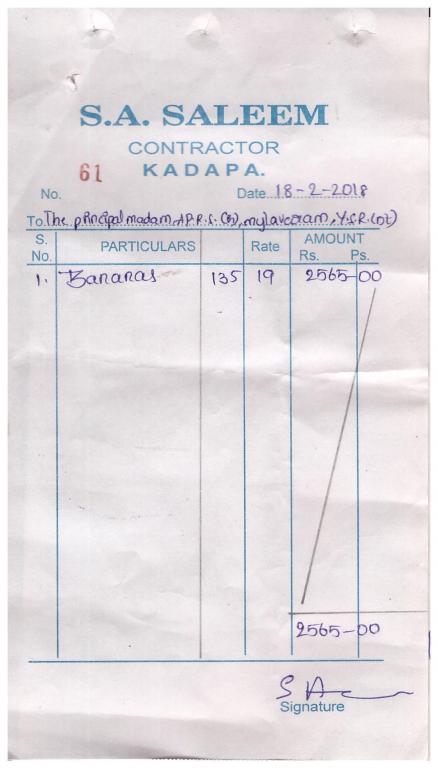 S.A. SALEEM
CONTRACTOR
KADAPA.
61
No. Date 18-2-2018
To. The principal madam, A.P.R.S. (G), mylavaram, Y.S.R. (Dt)
S. No. PARTICULARS Rate AMOUNT Rs. Ps.
1. Bananas 135 19 2565-00
2565-00
Signature